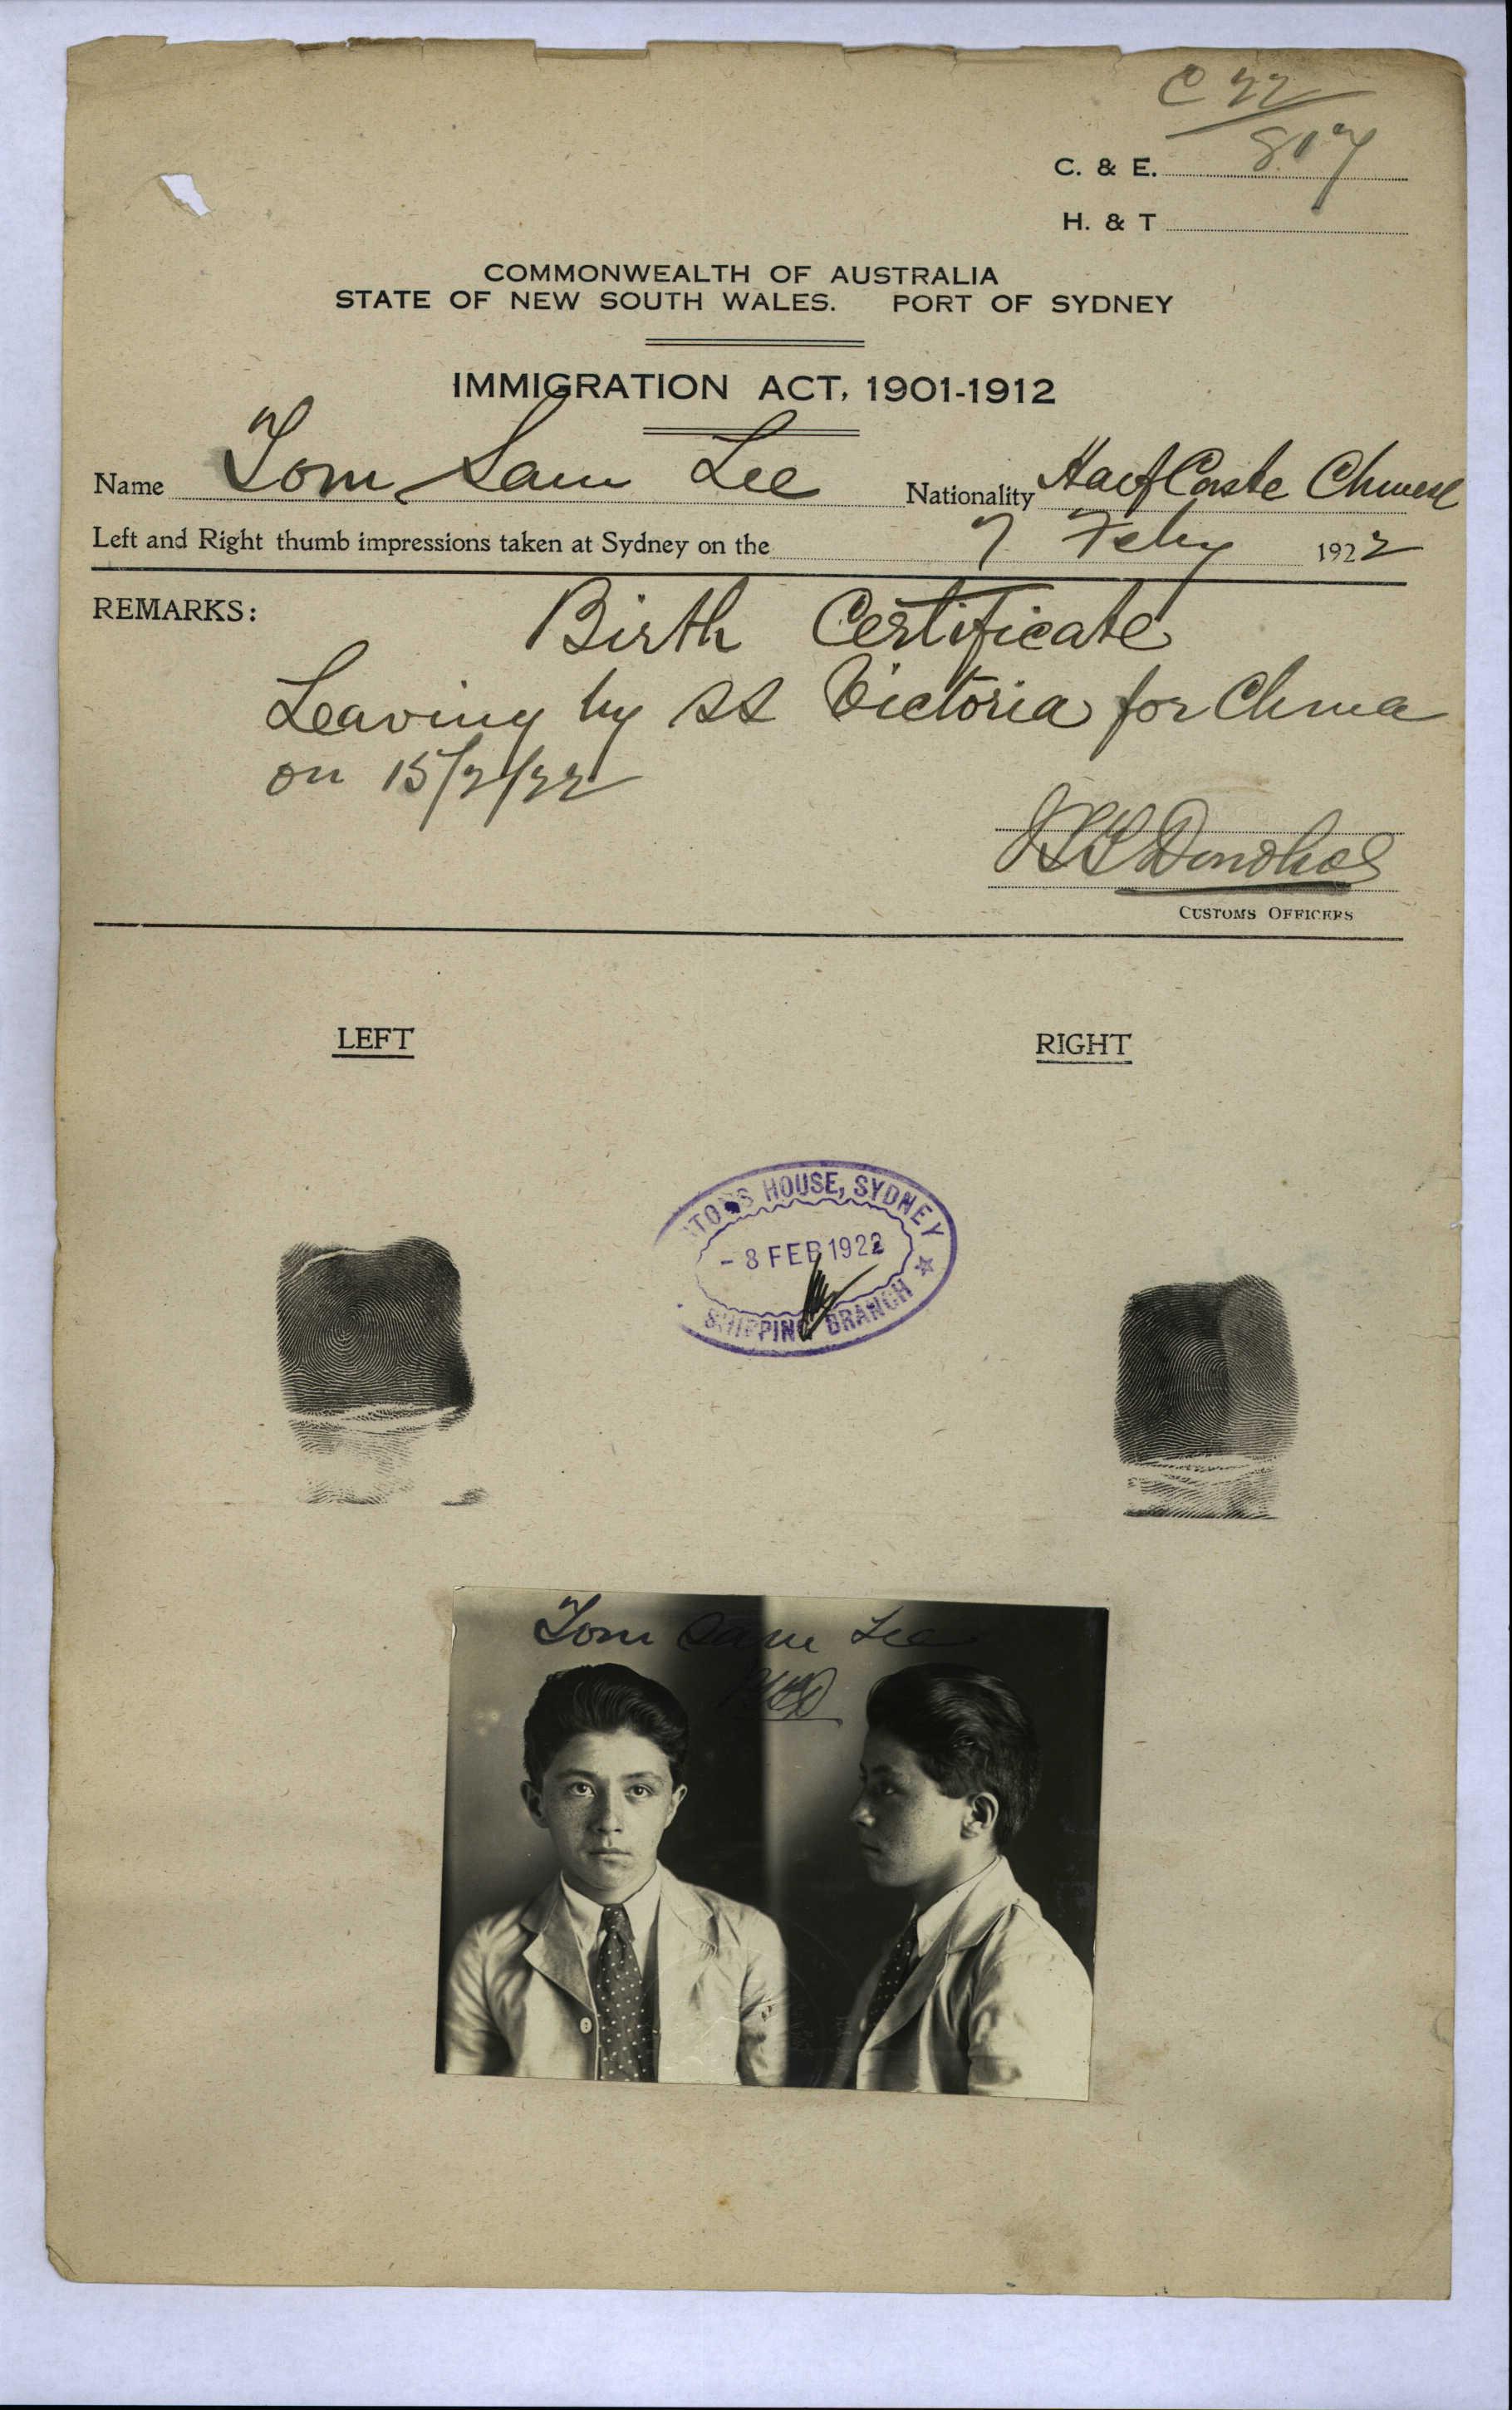 C 22
C. & E. 817
H. & T
COMMONWEALTH OF AUSTRALIA
STATE OF NEW SOUTH WALES. PORT OF SYDNEY
IMMIGRATION ACT, 1901-1912
Name Tom Sam Lee Nationality Half Caste Chinese
Left and Right thumb impressions taken at Sydney on the 7 Feby 1922
REMARKS: Birth Certificate
Leaving by SS Victoria for China
on 15/2/22
Donohoe
CUSTOMS OFFICERS
LEFT RIGHT
HOUSE, SYDNEY
- 8 FEB 1922
SHIPPING BRANCH
Tom Sam Lee